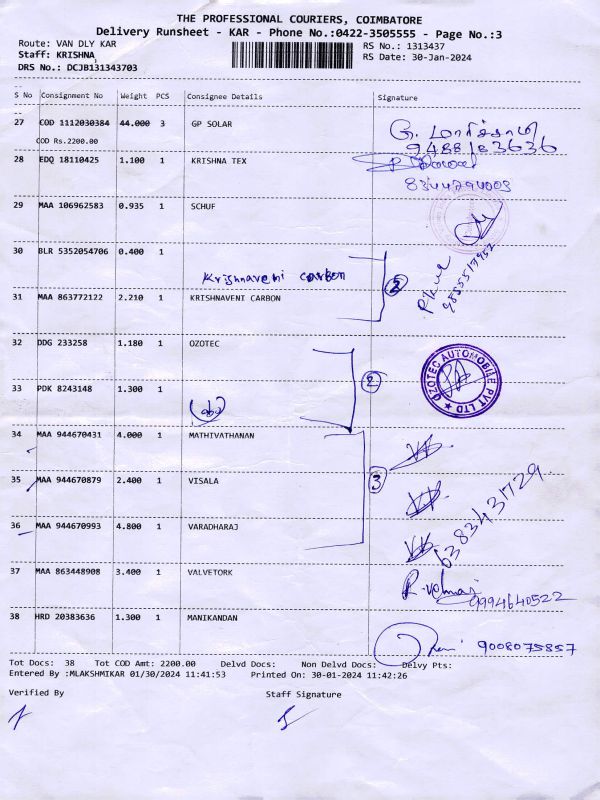 THE PROFESSIONAL COURIERS, COIMBATORE
Delivery Runsheet - KAR - Phone No.:0422-3505555 - Page No.:3
Route: VAN DLY KAR
RS No.: 1313437
Staff: KRISHNA,
RS Date: 30-Jan-2024
DRS No.: DCJB131343703
S No Consignment No Weight PCS Consignee Details Signature
27 COD 1112030384 44.000 3 GP SOLAR
COD Rs.2200.00
9488183636
28 EDQ 18110425 1.100 1 KRISHNA TEX
8344794003
29 MAA 106962583 0.935 1 SCHUF
30 BLR 5352054706 0.400 1
Krishnaveni carbon
2
31 MAA 863772122 2.210 1 KRISHNAVENI CARBON
32 DDG 233258 1.180 1 OZOTEC
OZOTEC AUTOMOBILE PVT LTD
2
33 PDK 8243148 1.300 1
34 MAA 944670431 4.000 1 MATHIVATHANAN
35 MAA 944670879 2.400 1 VISALA
3
6383431729
36 MAA 944670993 4.800 1 VARADHARAJ
37 MAA 863448908 3.400 1 VALVETORK
9994640522
38 HRD 20383636 1.300 1 MANIKANDAN
9008075857
Tot Docs: 38 Tot COD Amt: 2200.00 Delvd Docs: Non Delvd Docs: Delvy Pts:
Entered By :MLAKSHMIKAR 01/30/2024 11:41:53 Printed On: 30-01-2024 11:42:26
Verified By Staff Signature